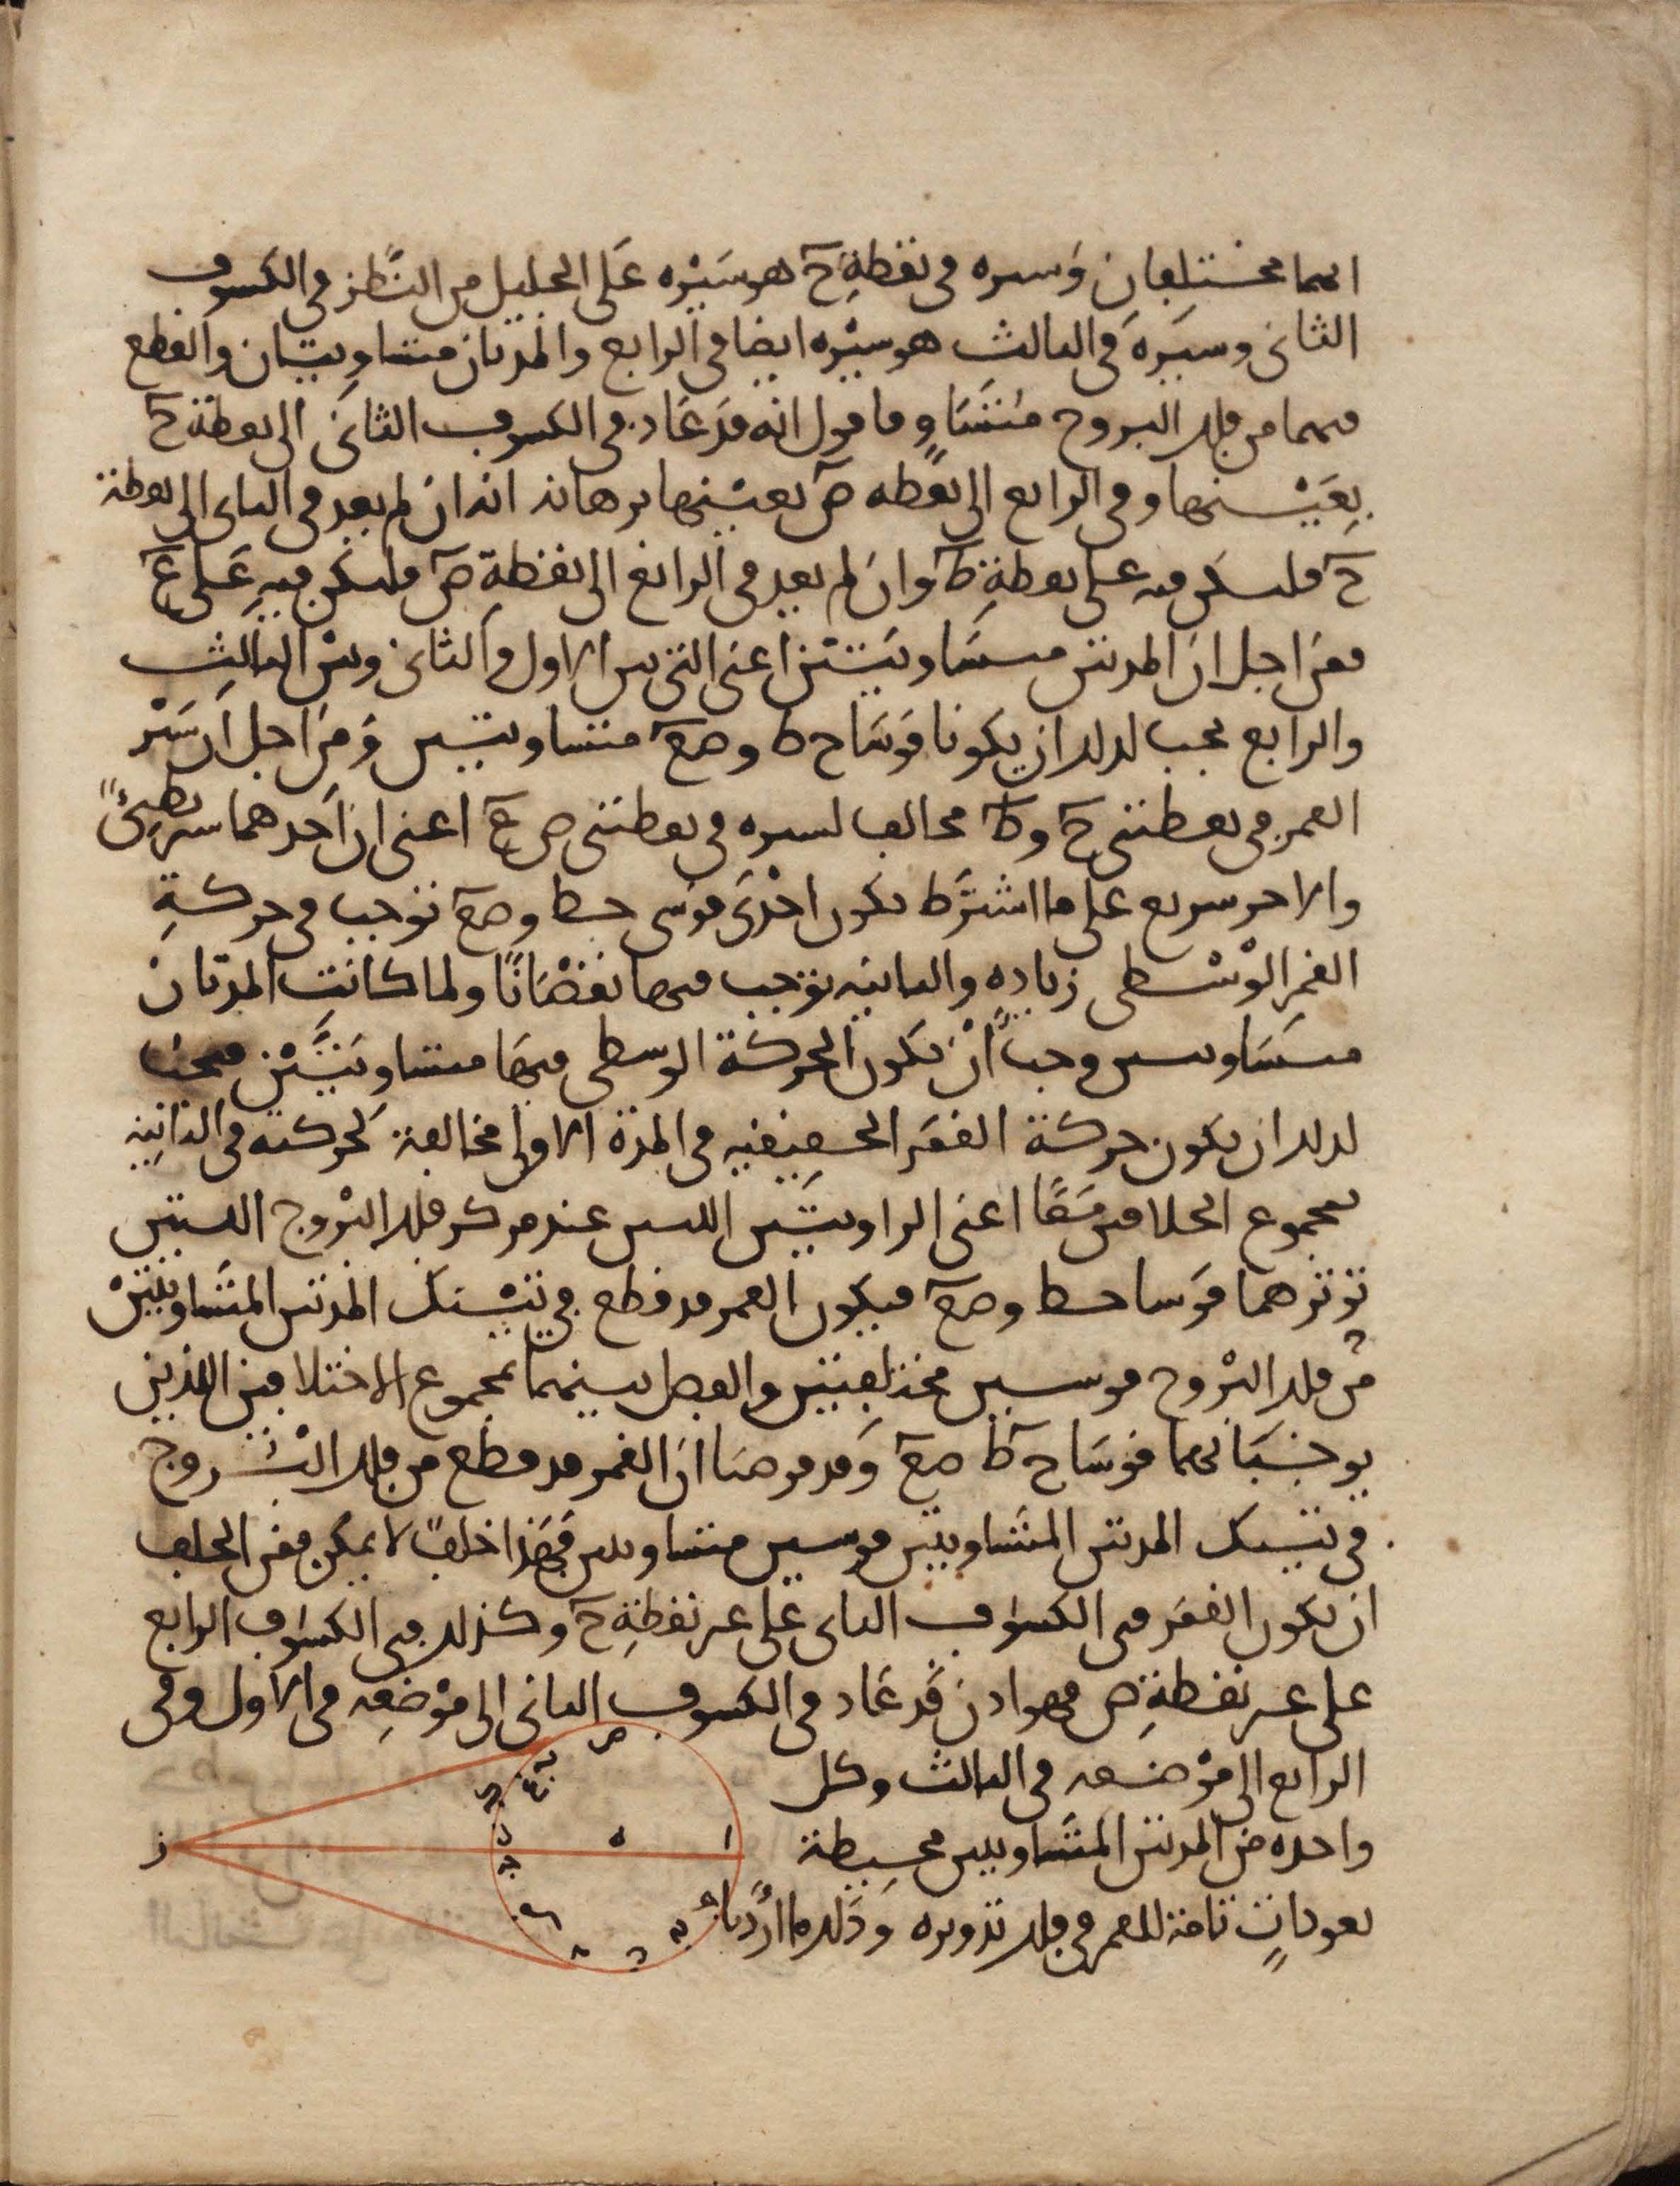 انهما مختلفان وسيره في نقطة ح هو سيره على الجليل من النظر في الكسوف
الثاني وسيره في الثالث هو سيره ايضا في الرابع والمدتان متساويتان والقطع
فيهما من فلك البروج متساو فاقول انه قد عاد في الكسوف الثاني الى نقطة ح
بعينها وفي الرابع الى نقطة ص بعينها برهانه انه ان لم يعد في الثاني الى نقطة
ح فليكن فيه على نقطة ط وان لم يعد في الرابع الى نقطة ص فليكن فيه على ع
فمن اجل ان المدتين متساويتين اعني التي بين الاول والثاني وبين الثالث
والرابع يجب لذلك ان يكونا قوسا ح ط وصع متساويتين ومن اجل ان سير
القمر في نقطتي ح وط مخالف لسيره في نقطتي ص ع اعني ان احدهما سير بطيء
والاخر سريع على ما اشترط تكون احدى قوسي حط وصع توجب في حركة
القمر الوسطى زيادة والثانية توجب فيها نقصانا ولما كانت المدتان
متساويتين وجب ان تكون الحركة الوسطى فيها متساويتين فيجب
لذلك ان تكون حركة القمر الحقيقية في المدة الاولى مخالفة لحركته في الثانية
بمجموع الخلافين معا اعني الزاويتين اللتين عند مركز فلك البروج اللتين
توترهما قوسا حط وصع فيكون القمر قد قطع في تينك المدتين المتساويتين
من فلك البروج قوسين مختلفتين والفصل بينهما بمجموع الاختلافين اللذين
يوجبانهما قوسا ح ط صع وقد فرضنا ان القمر قد قطع من فلك البروج
في تينك المدتين المتساويتين قوسين متساويتين فهذا خلف لا يمكن فمن الخلف
ان يكون القمر في الكسوف الثاني على غير نقطة ح وكذلك في الكسوف الرابع
على غير نقطة ص فهو اذن قد عاد في الكسوف الثاني الى موضعه في الاول وفي
الرابع الى موضعه في الثالث وكل
واحده من المدتين المتساويتين محيطة
بعودات تامة للقمر في فلك تدويره وذلك ما اردنا
ز
ه
ا